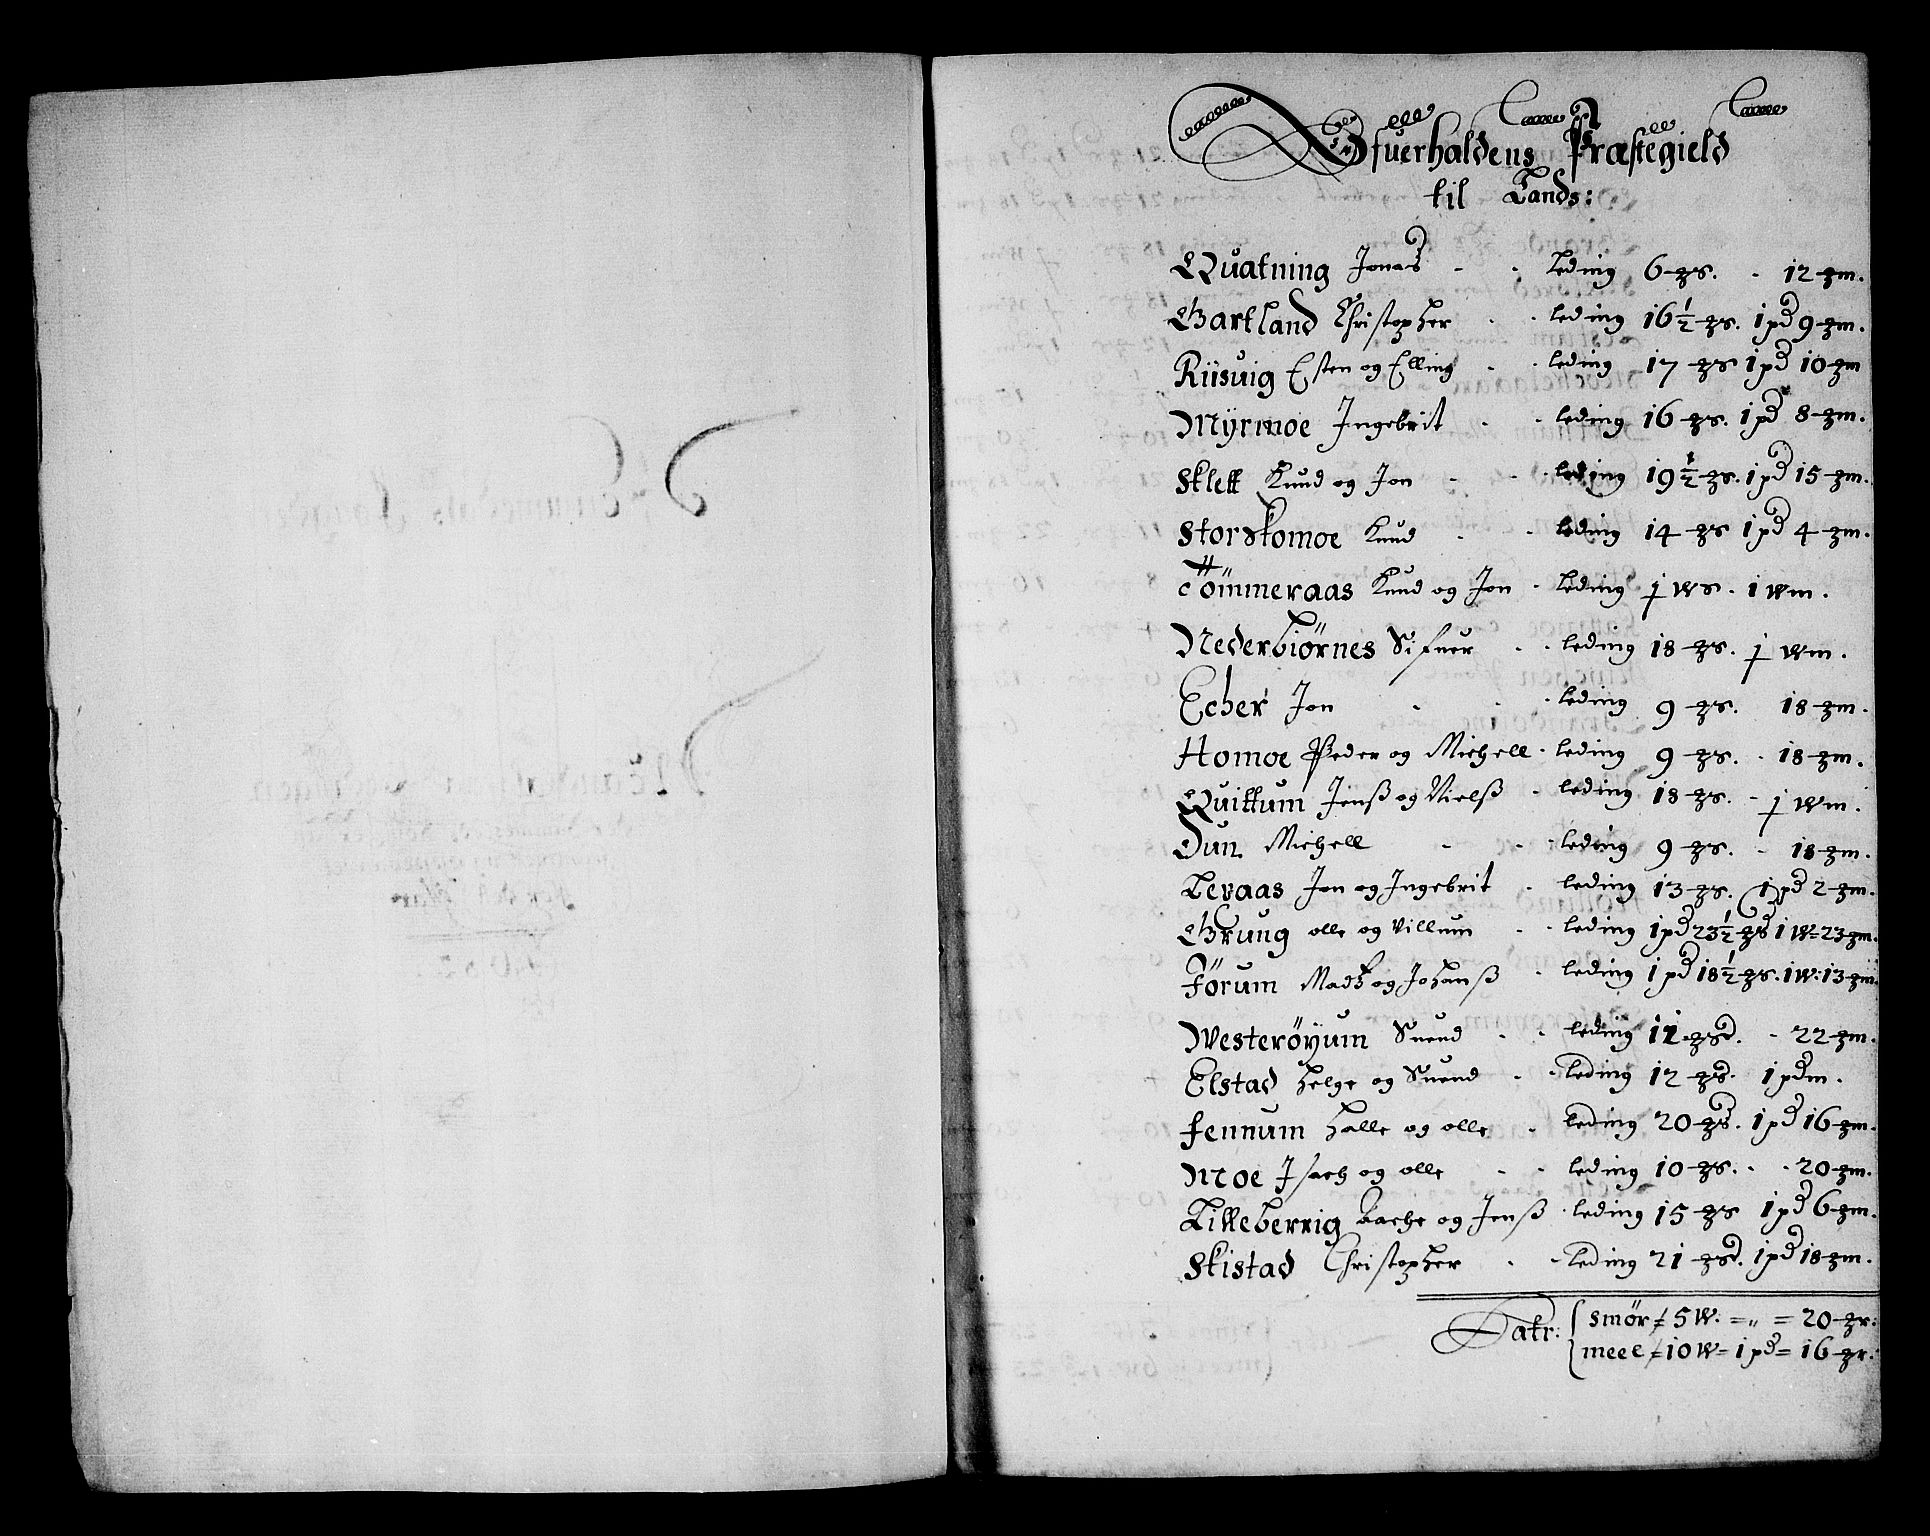 Ofuerhaldens Præstegield
til Lands:
Quatning Jonas - - Leding 6 ȝs. - 12 ȝm.
Gartland Christopher - - leding 16½ ȝs. 1 pd 9 ȝm.
Riisuig Esten og Elling - - leding 17 ȝs 1 pd 10 ȝm
Myrmoe Ingebrit - - leding 16 ȝs. 1 pd 8 ȝm.
Sklett Knud og Jon - - leding 19½ ȝs. 1 pd 15 ȝm.
Storskomoe Knud - - leding 14 ȝs 1 pd 4 ȝm.
Tömmeraas Knud og Jon - leding j ws. 1 wm.
Nederbiörnes Sifuer - - leding 18 ȝs. j wm.
Echer Jon - - leding 9 ȝs. 18 ȝm.
Homoe Peder og Michell - leding 9 ȝs. - 18 ȝm.
Quittum Jenß og Nielß - leding 18 ȝs. - j wm.
Dun Michell - - leding 9 ȝs. - 18 ȝm.
Levaas Jon og Ingebrit - leding 13 ȝs. 1 pd 2 ȝm.
Grung olle og Villum - - leding 1 pd 23½ ȝs 1 W= 23 ȝm.
Förum Madtz og Johanß - leding 1 pd 18½ ȝs. 1 W: 13 ȝm.
Westeröyum Suend - - leding 11 ȝsd. - 22 ȝm.
Elstad Helge og Suend - - leding 12 ȝs. 1 pdm.
Fennum Halle og olle - leding 20 ȝs. 1 pd 16 ȝm.
Moe Isach og olle - - leding 10 ȝs. - - 20 ȝm.
Lilleberrig Bache og Jenß - leding 15 ȝs 1 pd 6 ȝm.
Skistad Christopher - - leding 21 ȝsd. 1 pd 18 ȝm.
Latr: { smör = 5 W. = „ = 20 ȝr:
meel = 10 W = 1 pd = 16 ȝr: